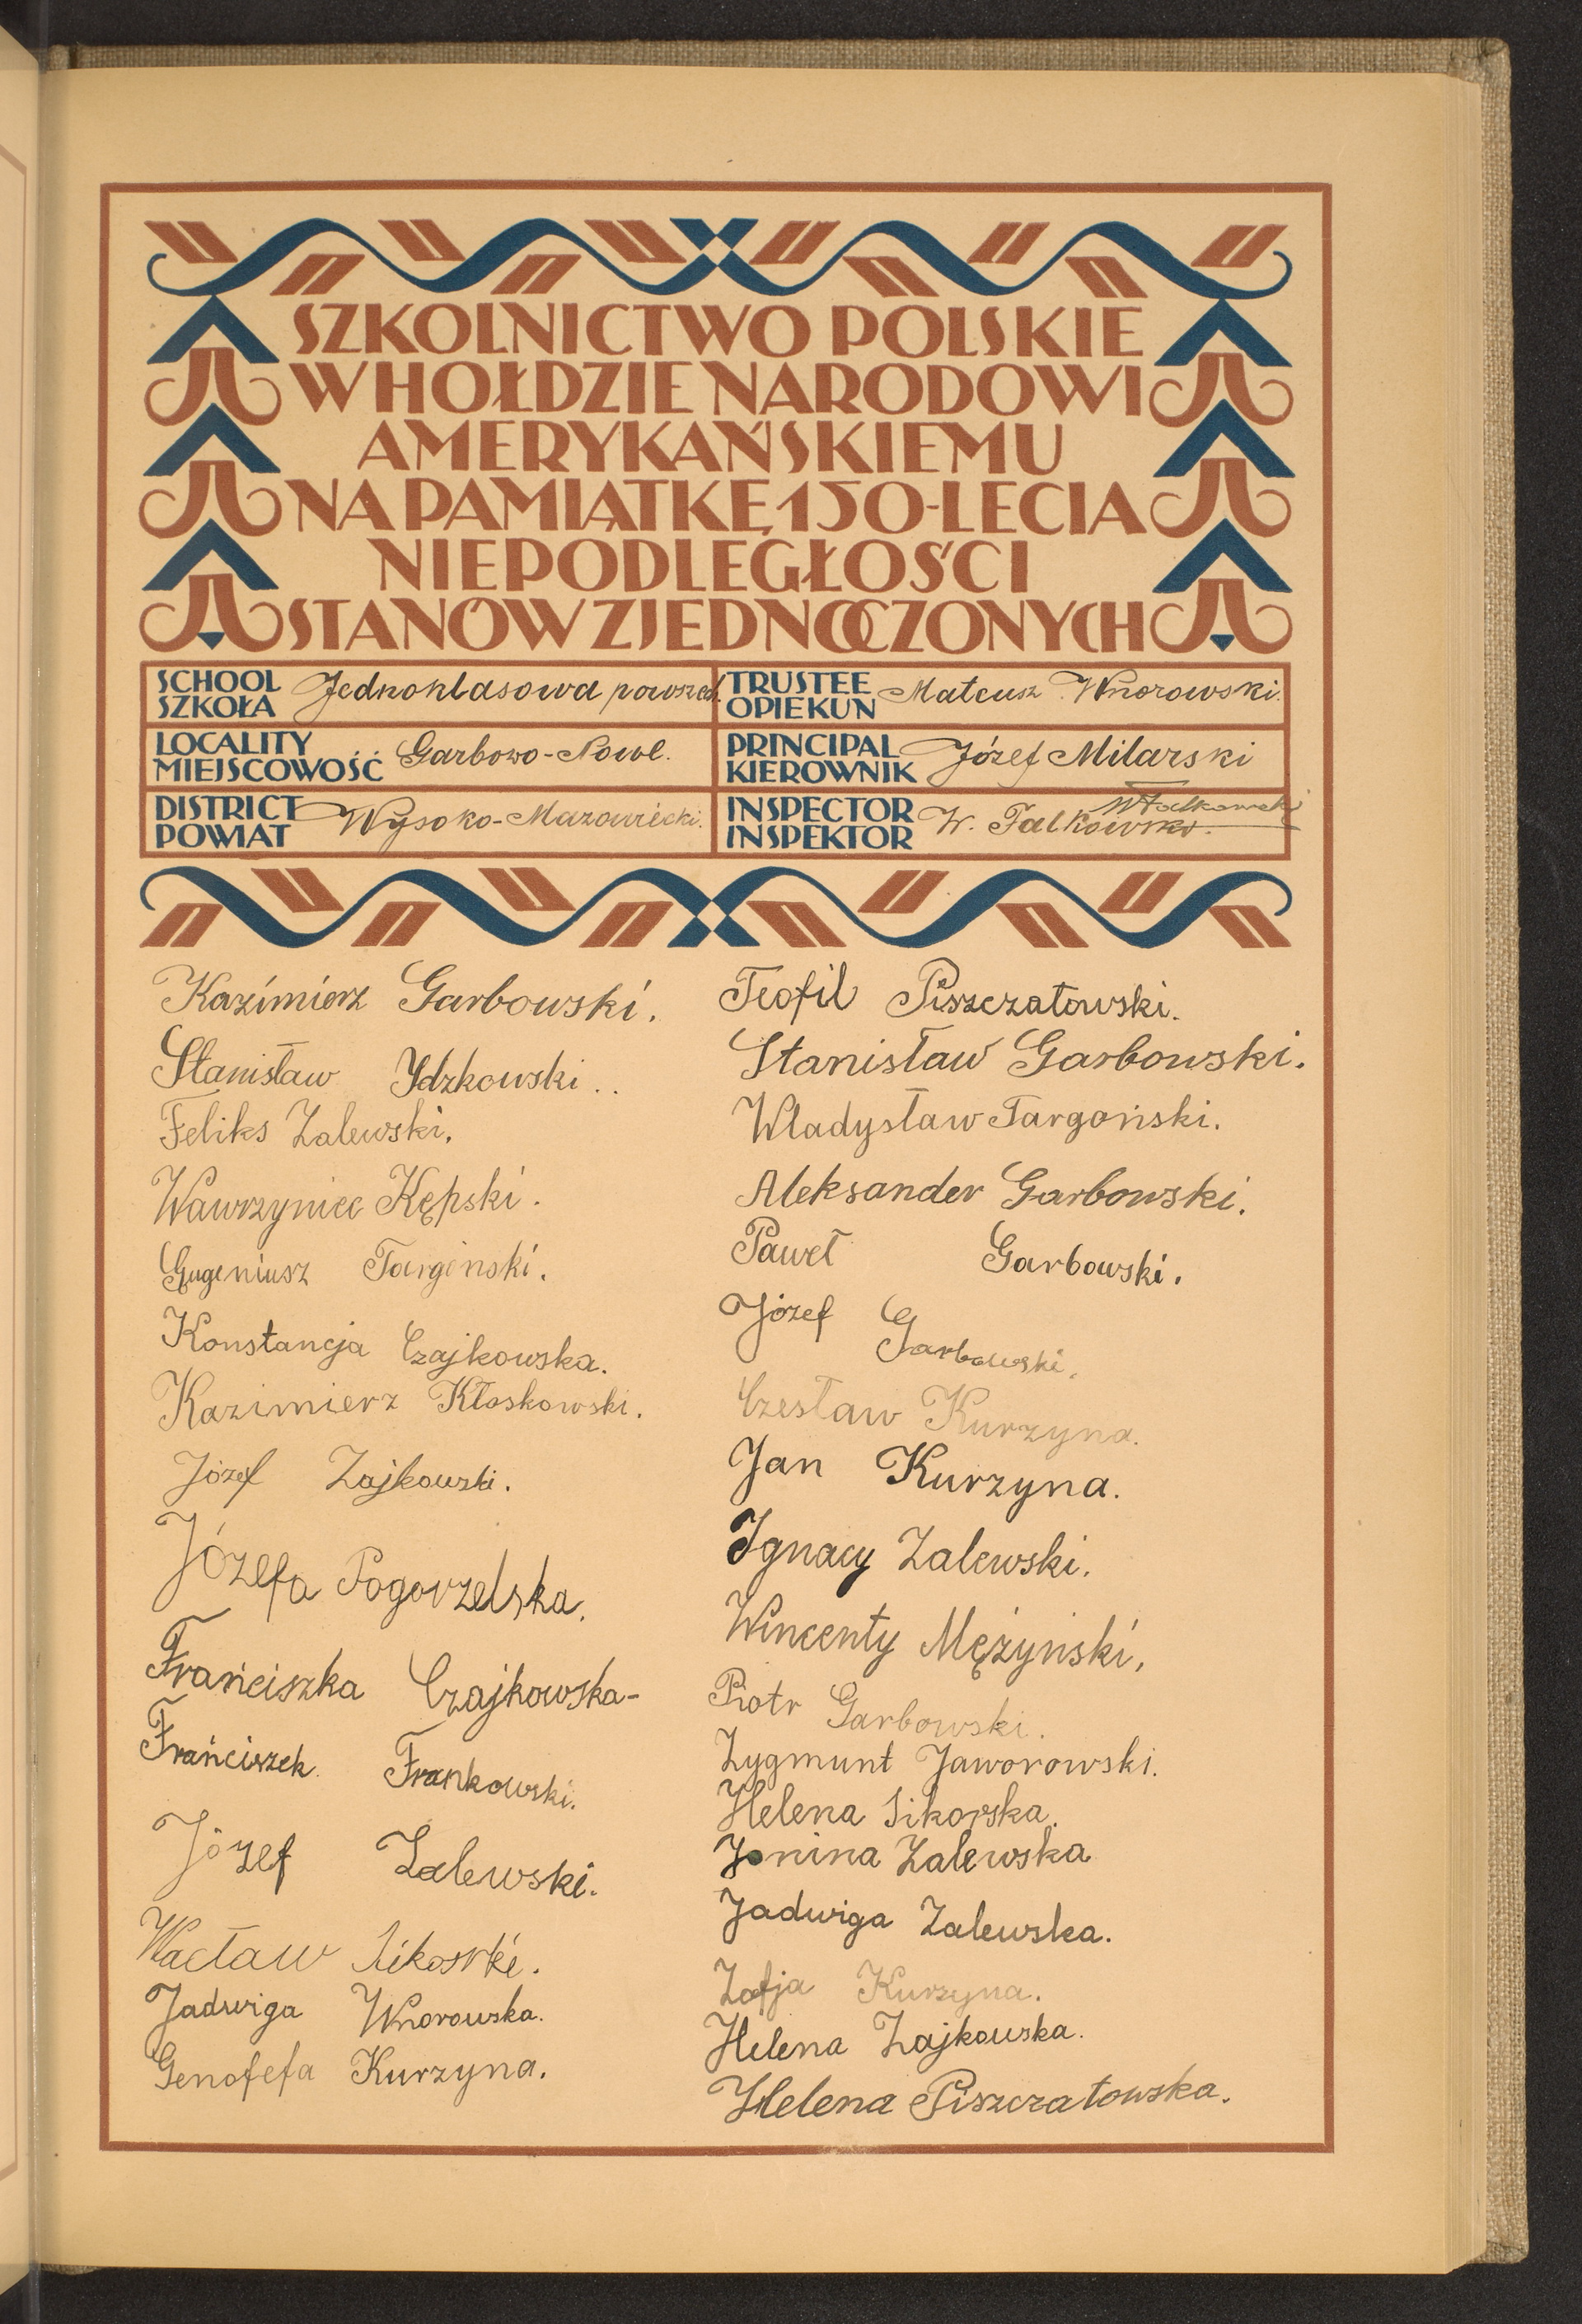 SZKOLNICTWO POLSKIE
W HOŁDZIE NARODOWI
AMERYKAŃSKIEMU
NA PAMIĄTKĘ 150-LECIA
NIEPODLEGŁOŚCI
STANÓW ZJEDNOCZONYCH
SCHOOL
SZKOŁA
Jednoklasowa powszech.
TRUSTEE
OPIEKUN
Mateusz Wnorowski.
LOCALITY
MIEJSCOWOŚĆ
Garbowo-Nowe.
PRINCIPAL
KIEROWNIK
Józef Milarski
DISTRICT
POWIAT
Wysoko-Mazowiecki.
INSPECTOR
INSPEKTOR
W. Falkowski.
WFalkowski
Kazimierz Garbowski.
Stanisław Ydzkowski..
Feliks Zalewski.
Wawrzyniec Kępski.
Eugeniusz Targonski.
Konstancja Czajkowska.
Kazimierz Kłoskowski.
Józef Zajkowski.
Józefa Pogorzelska.
Frańciszka Czajkowska-
Frańciszek Frankowski.
Józef Zalewski.
Wacław Sikorski.
Jadwiga Wnorowska.
Genofefa Kurzyna.
Teofil Piszczatowski.
Stanisław Garbowski.
Władysław Targoński.
Aleksander Garbowski.
Paweł Garbowski.
Józef Garbowski.
Czesław Kurzyna.
Jan Kurzyna.
Ignacy Zalewski.
Wincenty Mężyński.
Piotr Garbowski.
Zygmunt Jaworowski.
Helena Sikorska.
Janina Zalewska
Jadwiga Zalewska.
Zofja Kurzyna.
Helena Zajkowska.
Helena Piszczatowska.